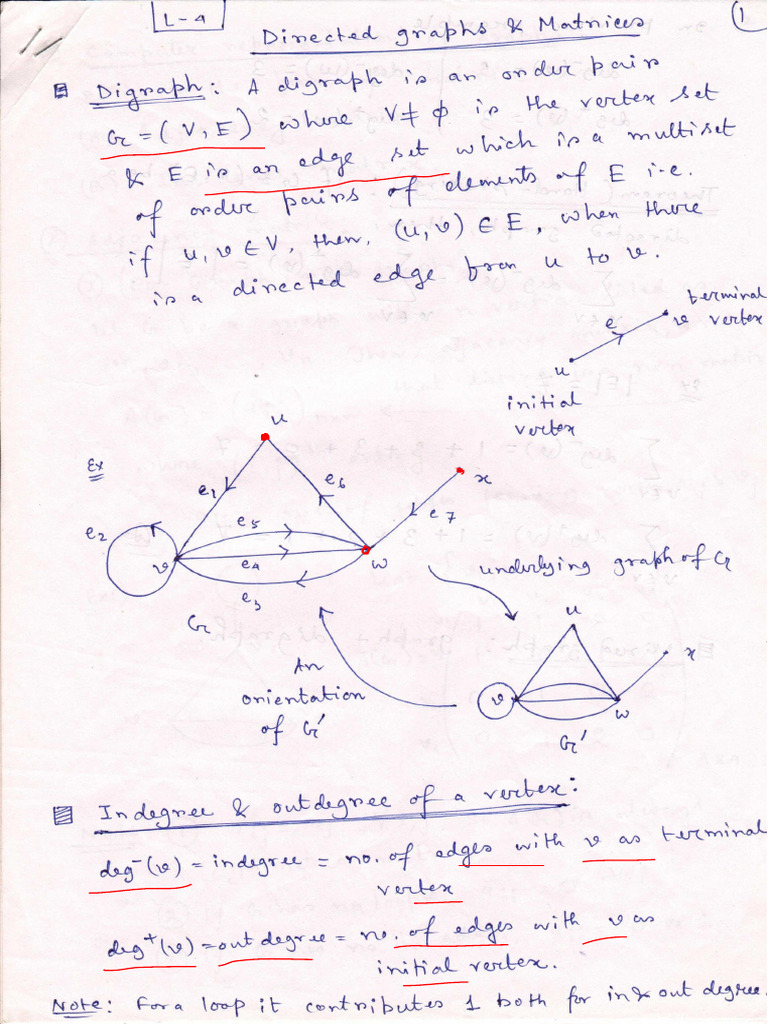 L-4
Directed graphs & Matrices
1
Digraph: A digraph is an order pair
G = (V, E) where V ≠ φ is the vertex set
& E is an edge set which is a multiset
of order pairs of elements of E i.e.
if u, v ∈ V, then, (u, v) ∈ E, when there
is a directed edge from u to v.
terminal
v vertex
e
u
initial
vertex
u
Ex
x
e1
e6
e7
e2
e5
v
e4
w
e3
G
underlying graph of G
u
x
An
orientation
of G'
v
w
G'
Indegree & outdegree of a vertex:
deg⁻(v) = indegree = no. of edges with v as terminal
vertex
deg⁺(v) = outdegree = no. of edges with v as
initial vertex.
Note: For a loop it contributes 1 both for in & out degree.